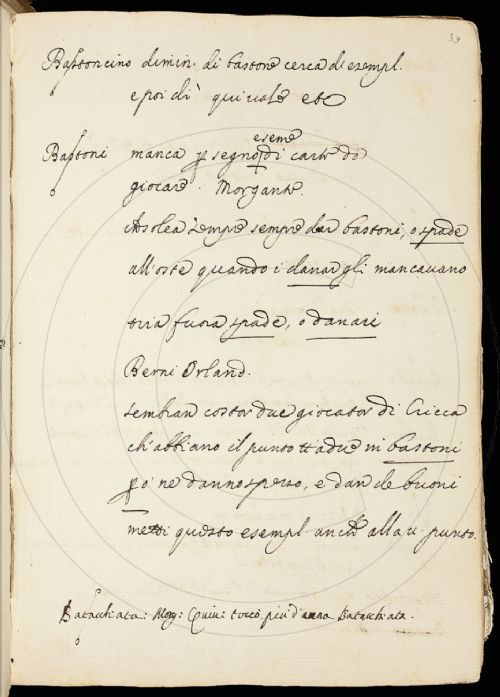 39
Bastoncino dimin. di bastone cerca di esempl.
e poi di' qui uale etc
eseme
Bastoni manca p segno di carte da
giocare. Morgante.
Asolea sempre sempre dar bastoni, o spade
all'oste quando i danar gli mancauano
tria fuora spade, o danari
Berni Orland.
sembran costor due giocator di Cricca
ch'abbiano il punto tt'adue in bastoni
po' ne danno spesso, e dan de buoni
metti questo esempl. anche alla u. punto.
Batacchiata: Morg: Quiui toccò piu d'una Batacchiata.